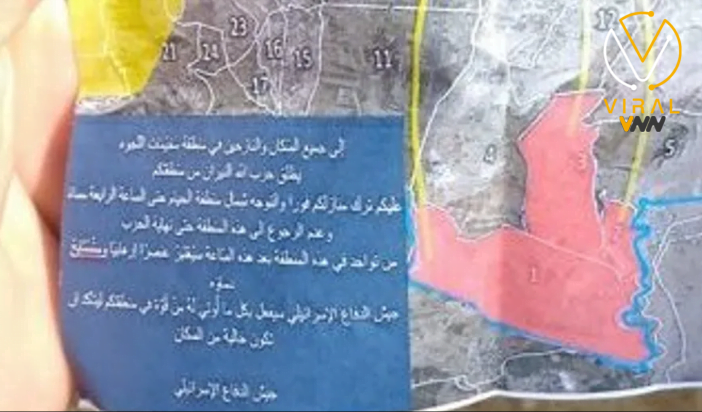 23
12
21
24
16
15
11
17
4
3
5
1
VIRAL
VNN
إلى جميع السكان والنازحين في منطقة مخيمات اللجوء
يطلق حزب الله النيران من منطقتكم
عليكم ترك منازلكم فورا والتوجه شمال منطقة الخيام حتى الساعة الرابعة مساء
وعدم الرجوع الى هذه المنطقة حتى نهاية الحرب
من تواجد في هذه المنطقة بعد هذه الساعة سيُعتبرُ عنصرًا إرهابيا
جيش الدفاع الإسرائيلي سيعمل بكل ما أوتي لهُ منْ قوّة في منطقتكم ليتأكد أن
تكون خالية من السكان
جيش الدفاع الإسرائيلي